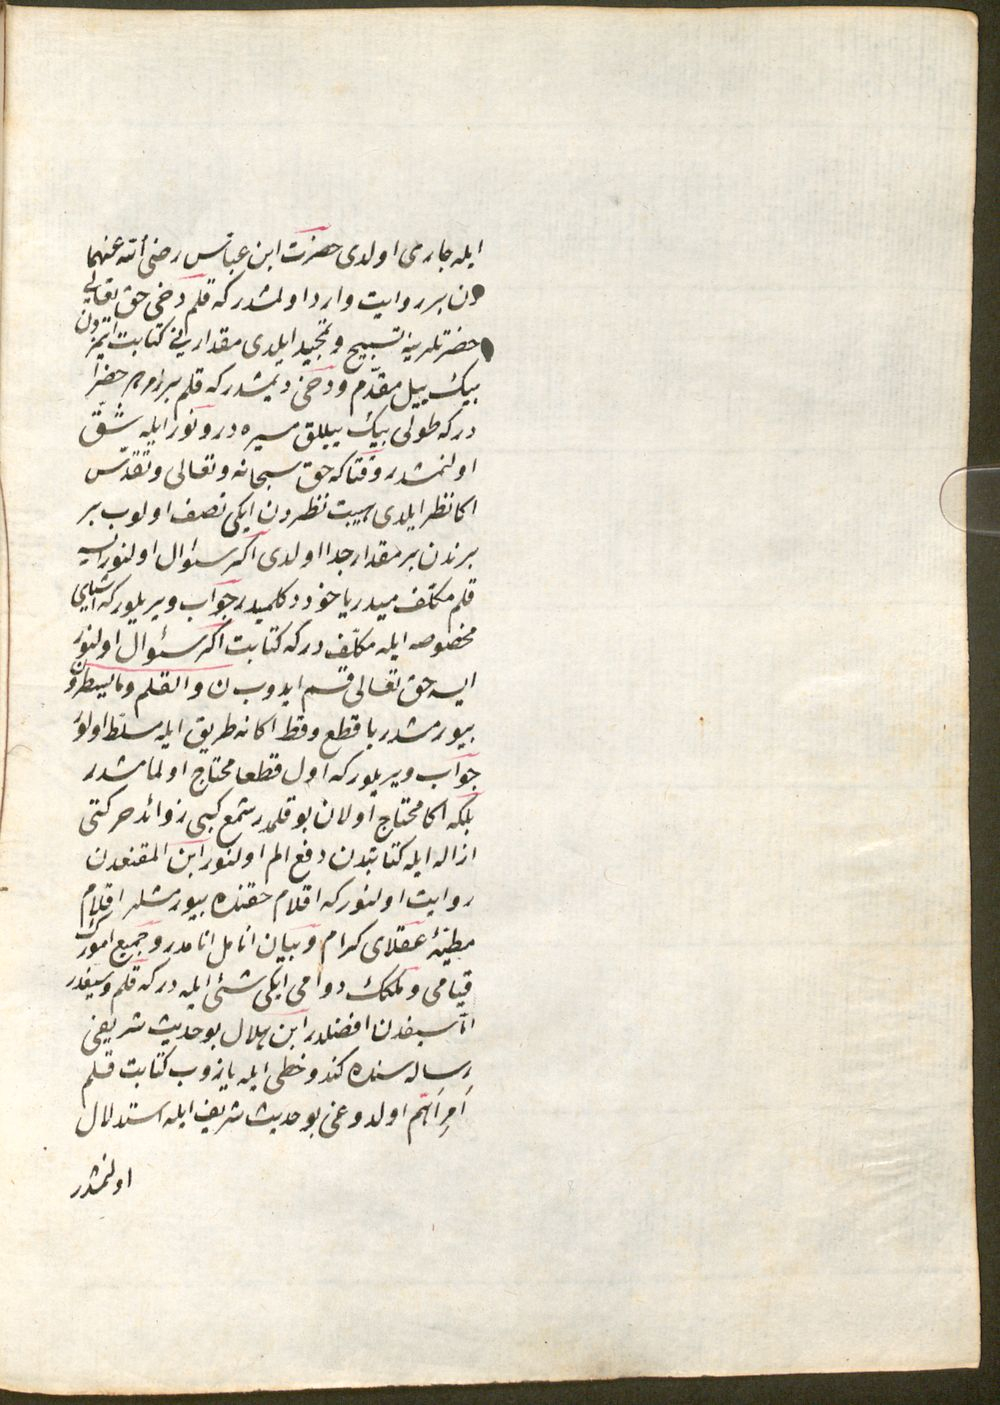 ايله جارى اولدى حضرت ابن عباس رضى الله عنهما
دن بر روايت وارد اولمشدر كه قلم دخى حق تعالى
حضرتلرينه تسبيح و تمجيد ايلدى مقدارينى كتابت ايتمزدن
بيك ييل مقدّم ودخى ديمشدر كه قلم بر زمرد خضرا
در كه طولى بيك ييللق مسيره در و نور ايله شق
اولنمشدر وقتاكه حق سبحانه وتعالى وتقدس
اكا نظر ايلدى هيبت نظردن ايكى نصف اولوب بر
برندن بر مقدار جدا اولدى اكر سئوال اولنور ايسه
قلم مكلف ميدر ياخود دكلميدر جواب ويريلور كه اشياى
مخصوصه ايله مكلّف در كه كتابت اكر سئوال اولنور
ايسه حق تعالى قسم ايدوب ن والقلم وما يسطرون
بيورمشدر يا قطع وقط اكا نه طريق ايله مسلّط اولور
جواب ويريلور كه اول قطعا محتاج اولمامشدر
بلكه اكا محتاج اولان بو قلمدر شمع كبى زوائد حركتى
ازاله ايله كتابتدن دفع الم اولنور ابن المقنعدن
روايت اولنور كه اقلام حقنده بيورمشلر اقلام
مطيّهٔ عقلاى كرام و بيان انامل انامدر و جميع امورك
قيامى و ملكك دوامى ايكى شئى ايله در كه قلم و سيفدر
امّا سيفدن افضلدر ابن هلال بو حديث شريفى
رساله سنده كندو خطى ايله يازوب كتابت قلم
امر اهم اولدوغى بو حديث شريف ايله استدلال
اولنمشدر